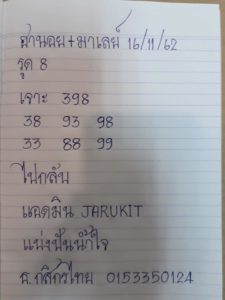 ฮานอย+มาเลย์ 16/11/62
รูด 8
เจาะ 398
38 93 98
33 88 99
ไปกลับ
แอดมิน JARUKIT
แบ่งปันน้ำใจ
ธ.กสิกรไทย 0153350124